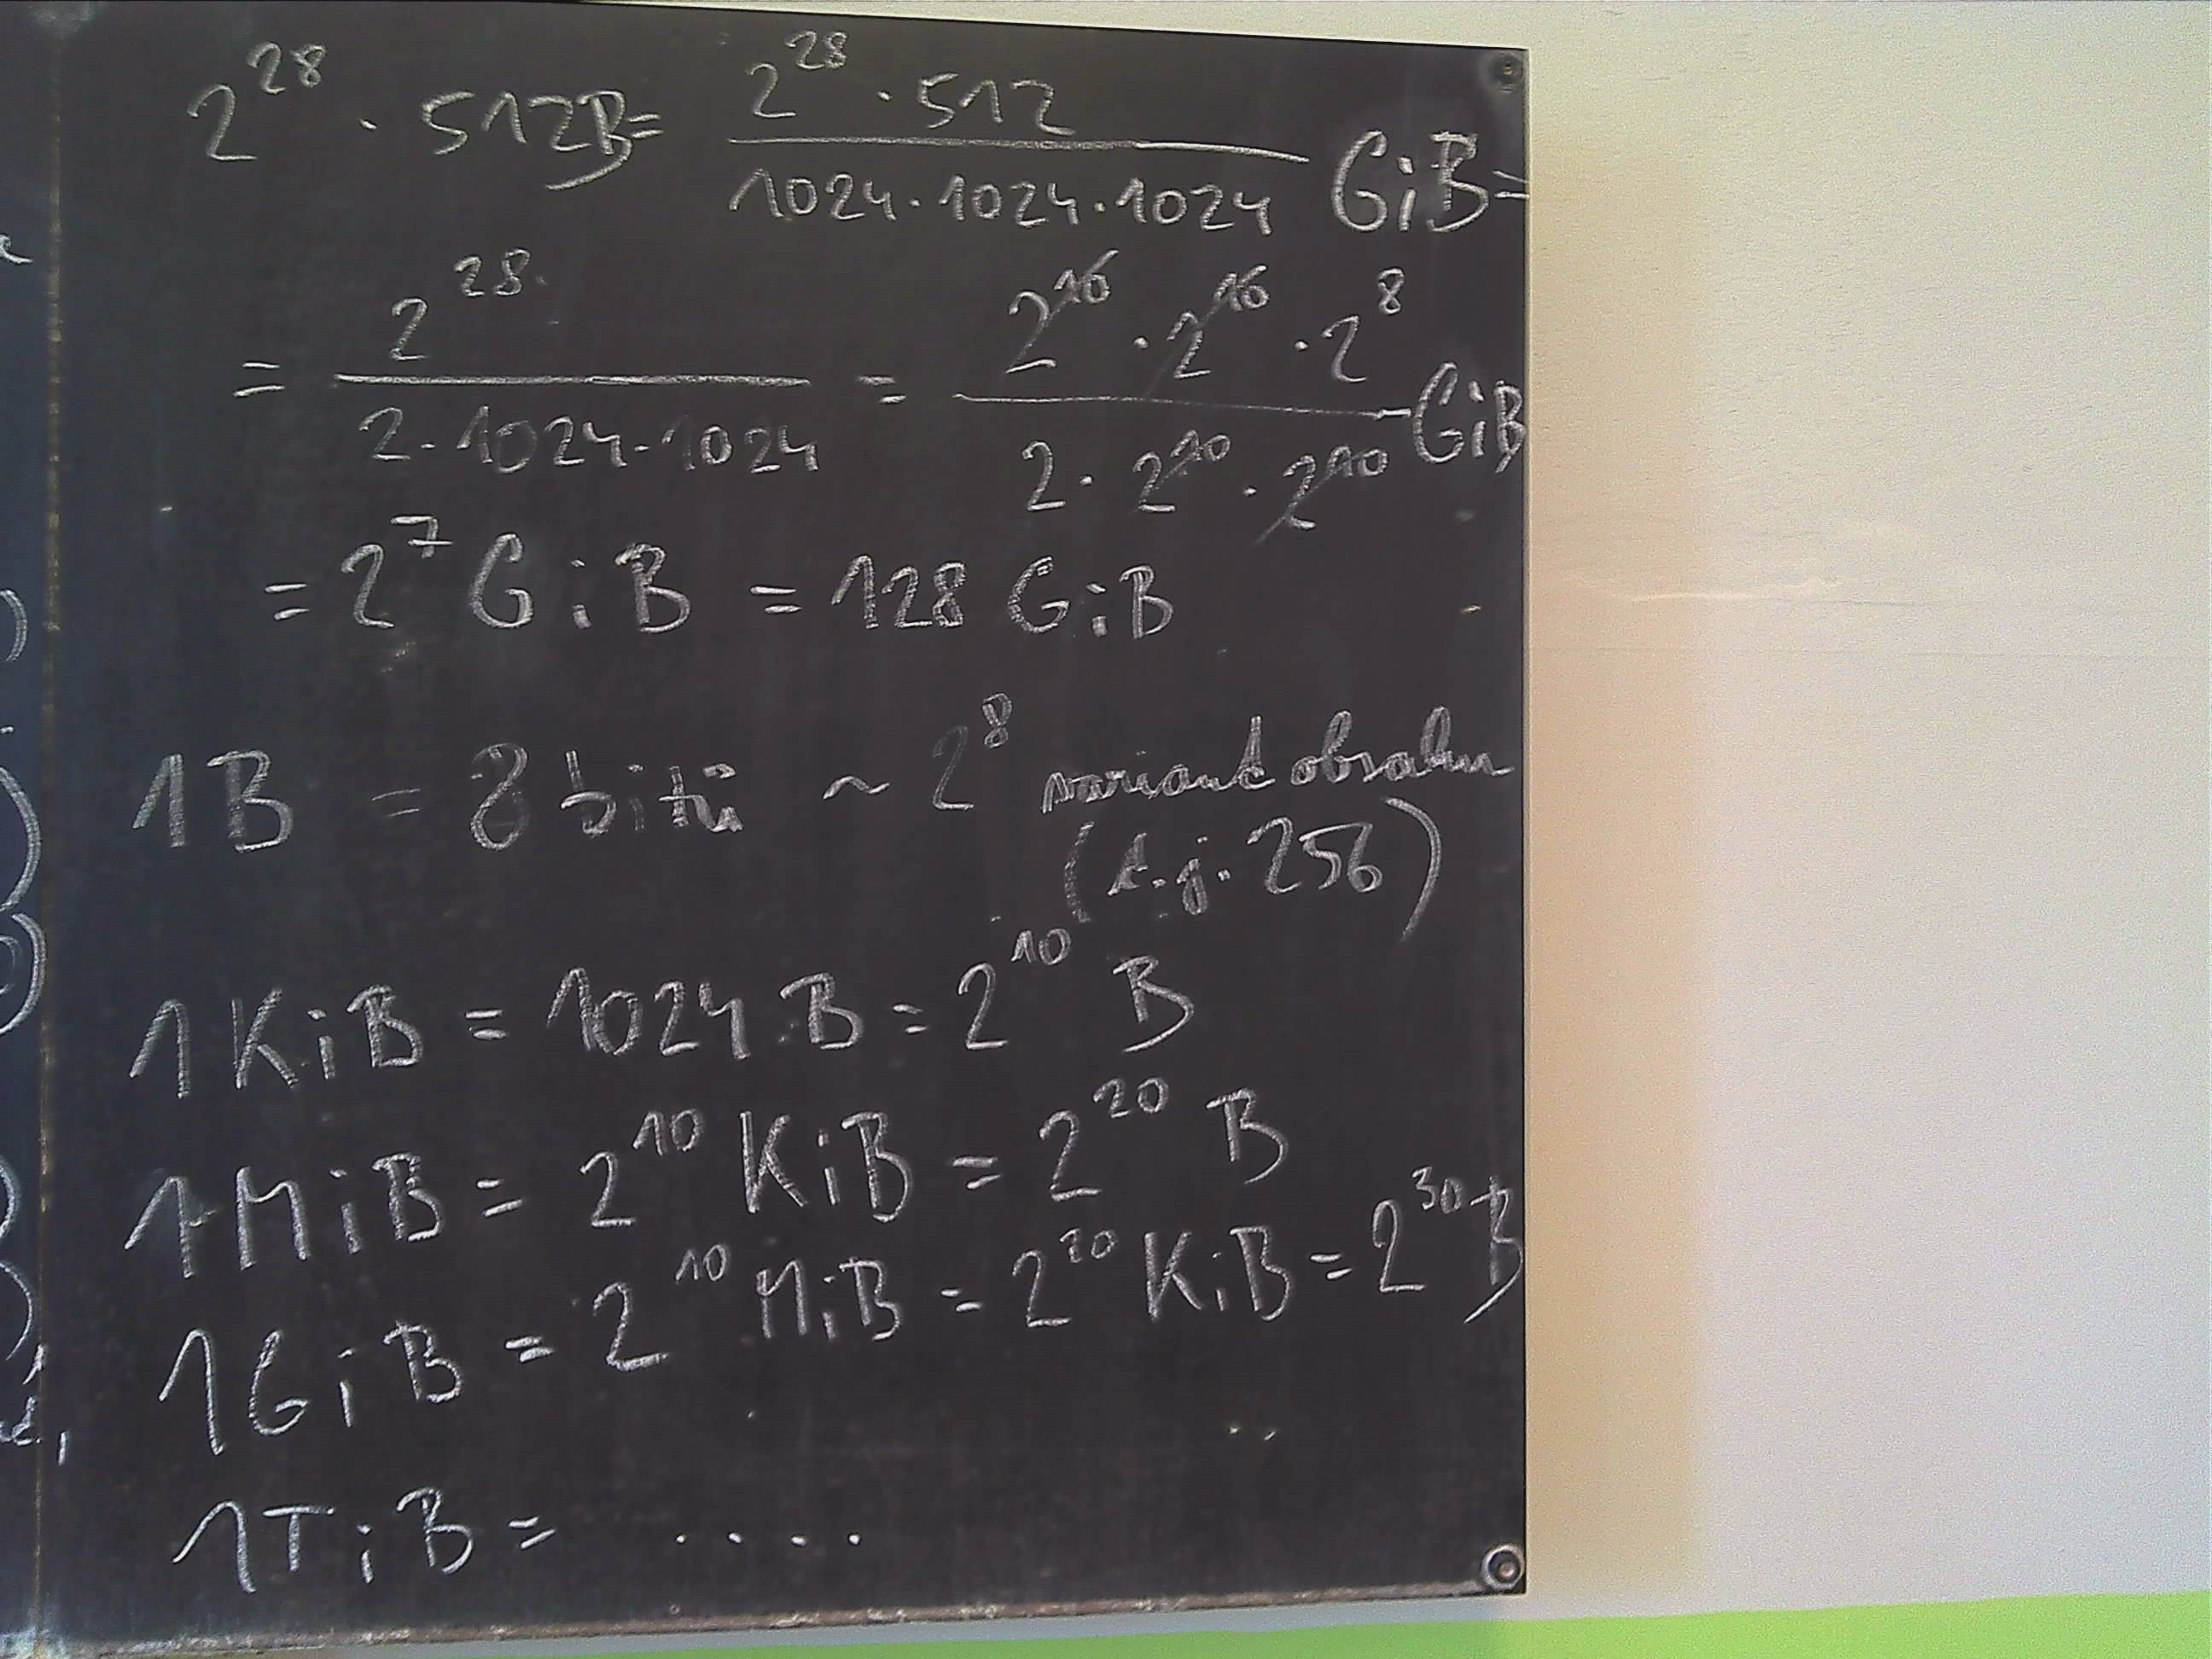 2^28 · 512B = (2^28 · 512) / (1024 · 1024 · 1024) GiB =
= 2^28 / (2 · 1024 · 1024) = (2^10 · 2^10 · 2^8) / (2 · 2^10 · 2^10) GiB
= 2^7 GiB = 128 GiB
1B = 8 bitů ~ 2^8 variant obsahu
(t.j. 256)
1KiB = 1024 B = 2^10 B
1MiB = 2^10 KiB = 2^20 B
1GiB = 2^10 MiB = 2^20 KiB = 2^30 B
1TiB = ....